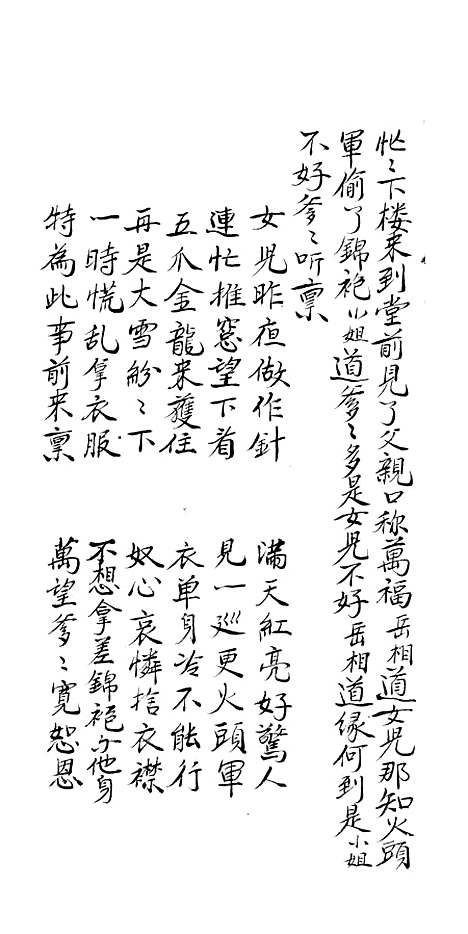 忙〻下楼来到堂前見了父親口称萬福岳相道女兒那知火頭
軍偷了錦袍小姐道爹〻多是女兒不好岳相道縁何到是小姐
不好爹〻听禀
女兒昨夜做作針
滿天紅亮好驚人
連忙推窓望下看
見一巡更火頭軍
五爪金龍来護住
衣单身冷不能行
再是大雪紛〻下
奴心哀憐捨衣襟
一時慌乱拿衣服
不想拿差錦袍与他身
特為此事前来禀
萬望爹〻寛恕恩